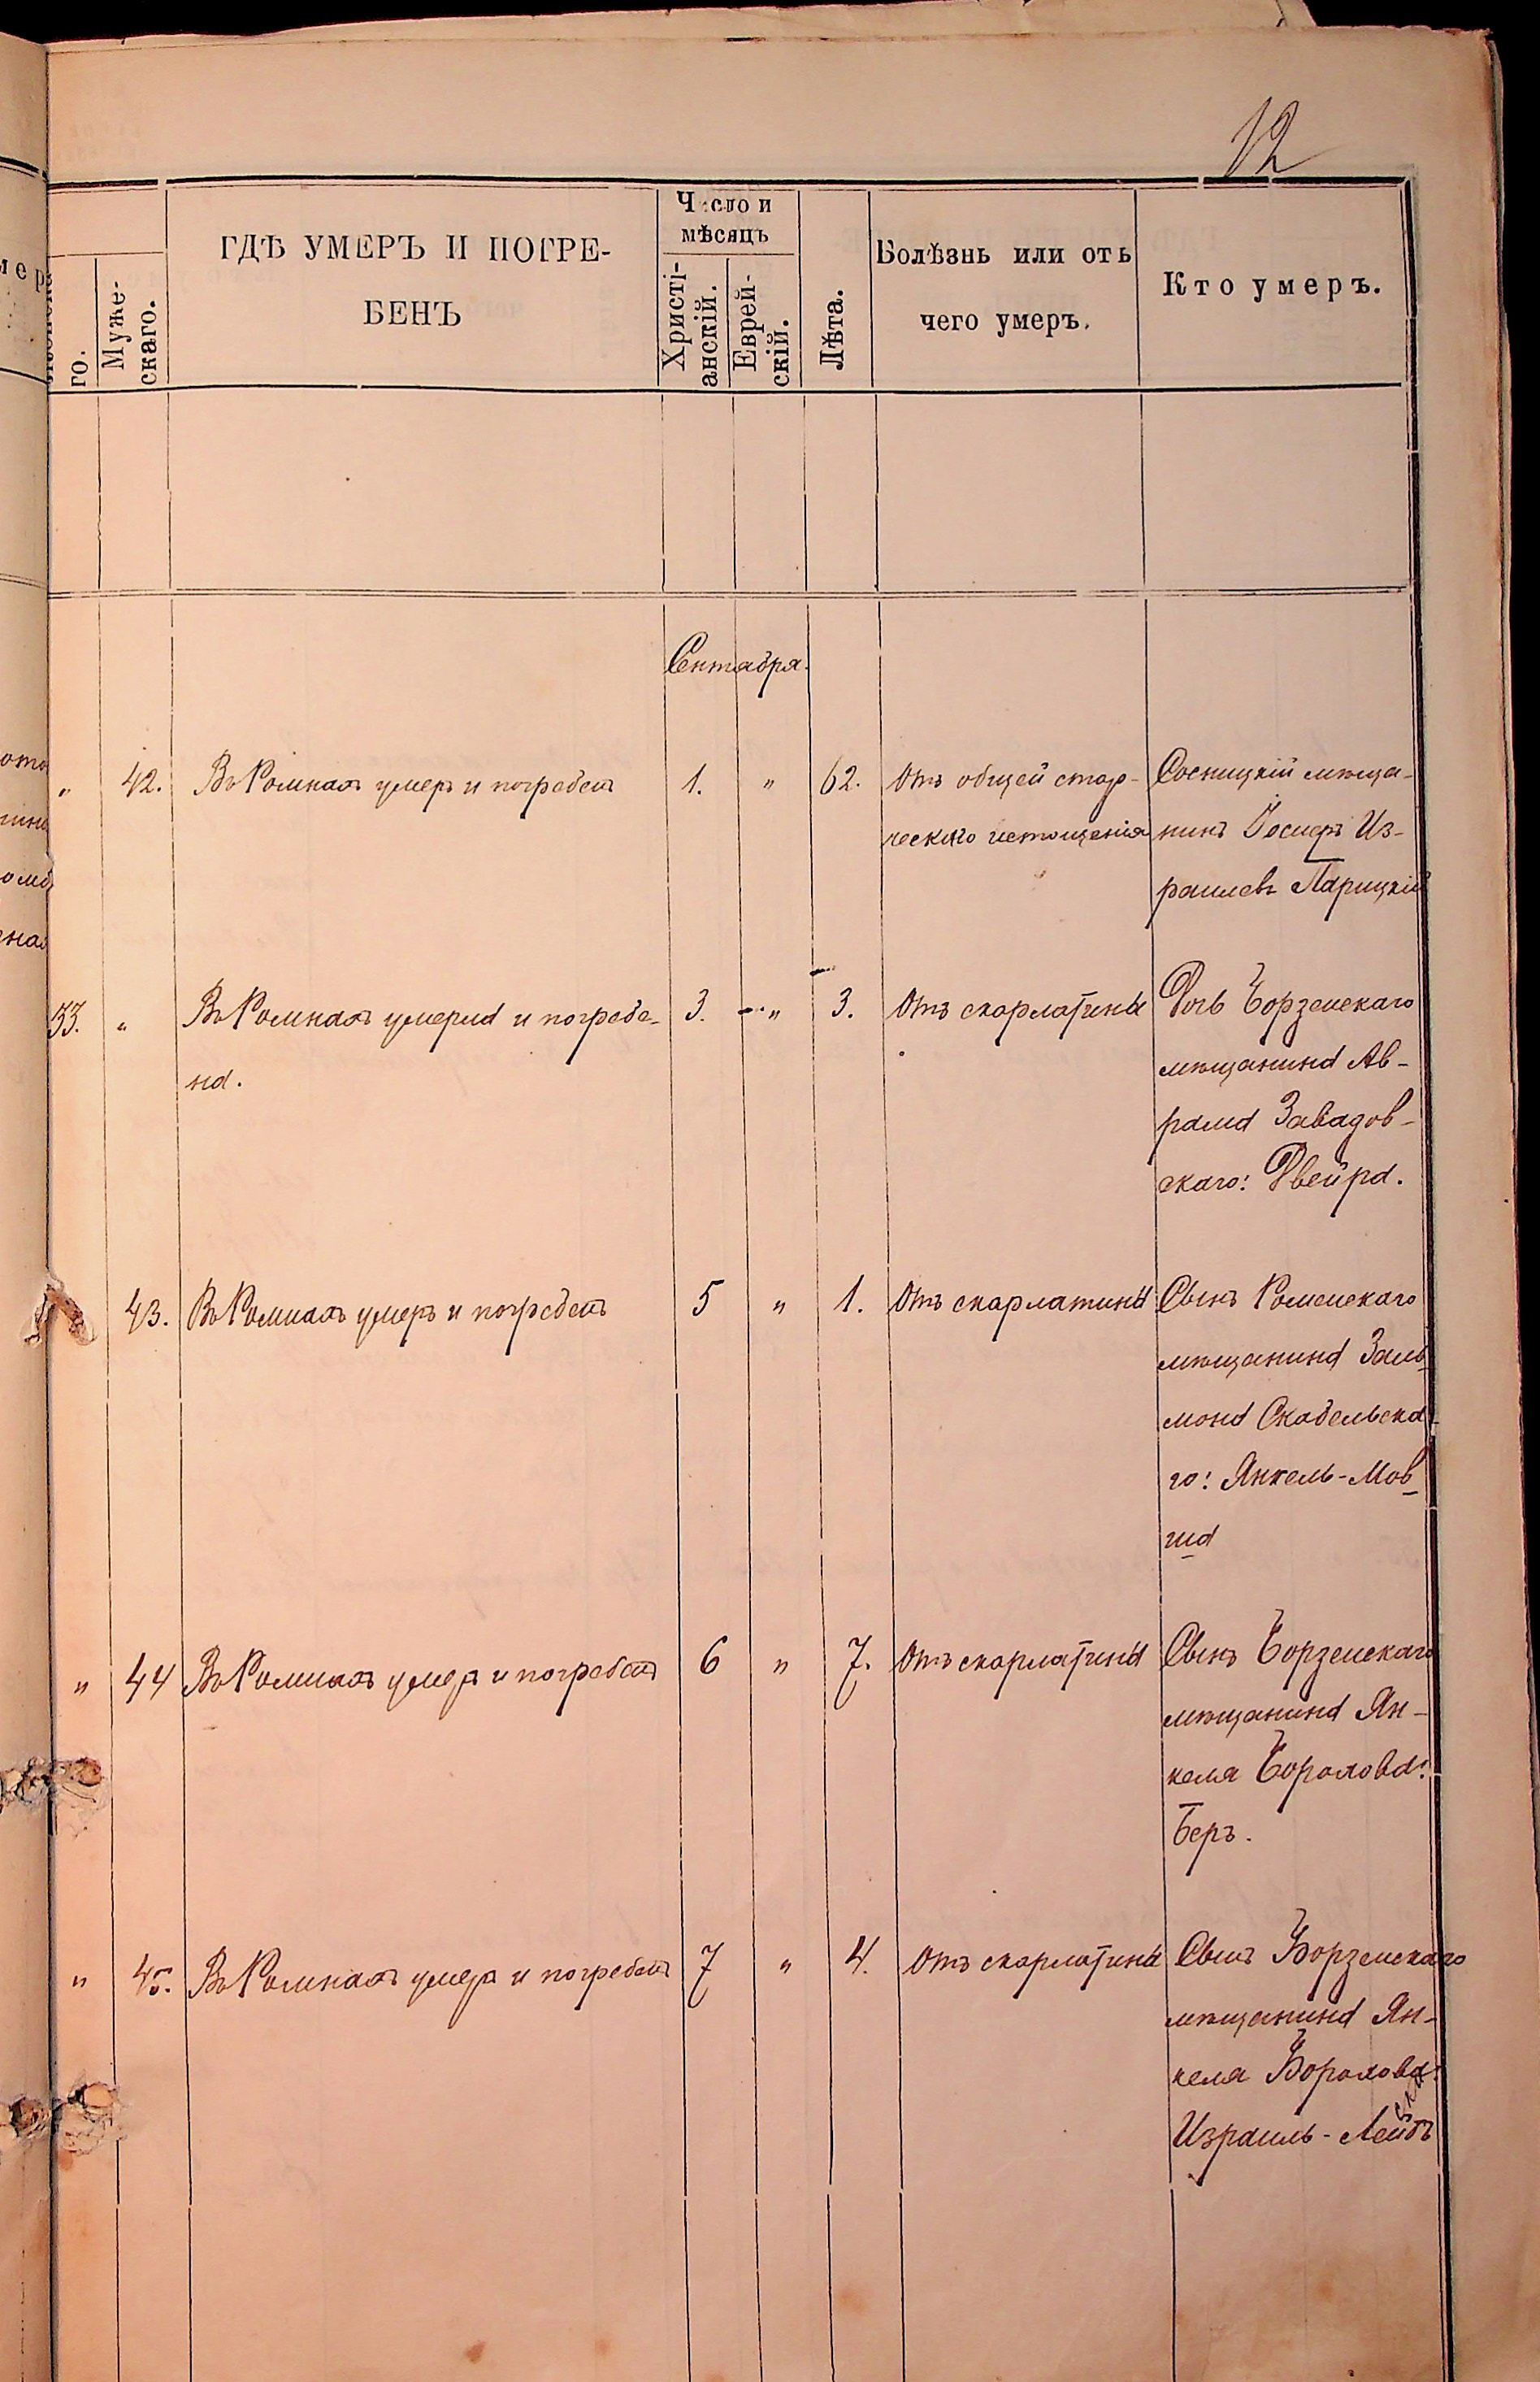 12
го.
Муже-
скаго.
ГДѢ УМЕРЪ И ПОГРЕ-
БЕНЪ
Число и
мѣсяцъ
Христі-
анскій.
Еврей-
скій.
Лѣта.
Болѣзнь или отъ
чего умеръ.
Кто умеръ.
Сентября.
„ 42. Въ Ромнахъ умеръ и погребенъ 1. „ 62. Отъ общей стар- Сосницкій мѣща-
ческаго истощенія нинъ Из-
раилевъ Парицкій
33. „ Въ Ромнахъ умерла и погребе- 3. „ 3. Отъ скарлатины Дочь Борзенскаго
на. мѣщанина Ав-
рама Завадов-
скаго: Двейра.
43. Въ Ромнахъ умеръ и погребенъ 5 „ 1. Отъ скарлатины Сынъ Роменскаго
мѣщанина Заль-
мона Скабельска-
го: Янкель-Мов-
ша
„ 44 Въ Ромнахъ умеръ и погребенъ 6 „ 7. Отъ скарлатины Сынъ Борзенскаго
мѣщанина Ян-
келя Борохова:
Беръ.
„ 45. Въ Ромнахъ умеръ и погребенъ 7 „ 4. Отъ скарлатины Сынъ Борзенскаго
мѣщанина Ян-
келя Борохова:
Израиль-Лейбъ